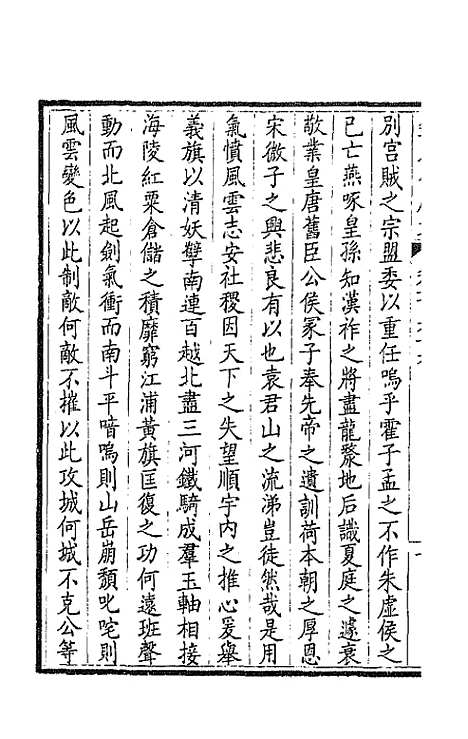 別宮賊之宗盟委以重任嗚乎霍子孟之不作朱虛侯之
已亡燕啄皇孫知漢祚之將盡龍漦地后識夏庭之遽衰
敬業皇唐舊臣公侯冢子奉先帝之遺訓荷本朝之厚恩
宋微子之興悲良有以也袁君山之流涕豈徒然哉是用
氣憤風雲志安社稷因天下之失望順宇内之推心爰舉
義旗以清妖孽南連百越北盡三河鐵騎成羣玉軸相接
海陵紅粟倉儲之積靡窮江浦黃旗匡復之功何遠班聲
動而北風起劍氣衝而南斗平喑嗚則山岳崩頹叱咤則
風雲變色以此制敵何敵不摧以此攻城何城不克公等